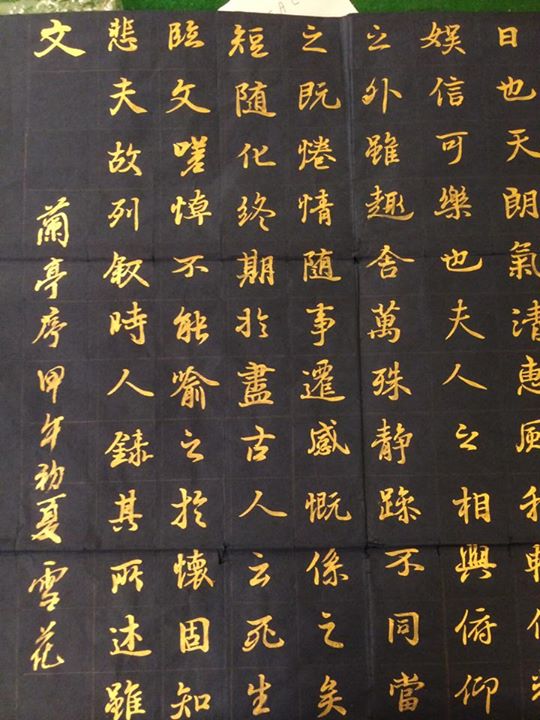 日也天朗氣清惠風和
娛信可樂也夫人之相與俯仰
之外雖趣舍萬殊靜躁不同當
之既惓情隨事遷感慨係之矣
短隨化終期於盡古人云死生
臨文嗟悼不能喻之於懷固知
悲夫故列叙時人録其所述雖
文 蘭亭序甲午初夏 雪花